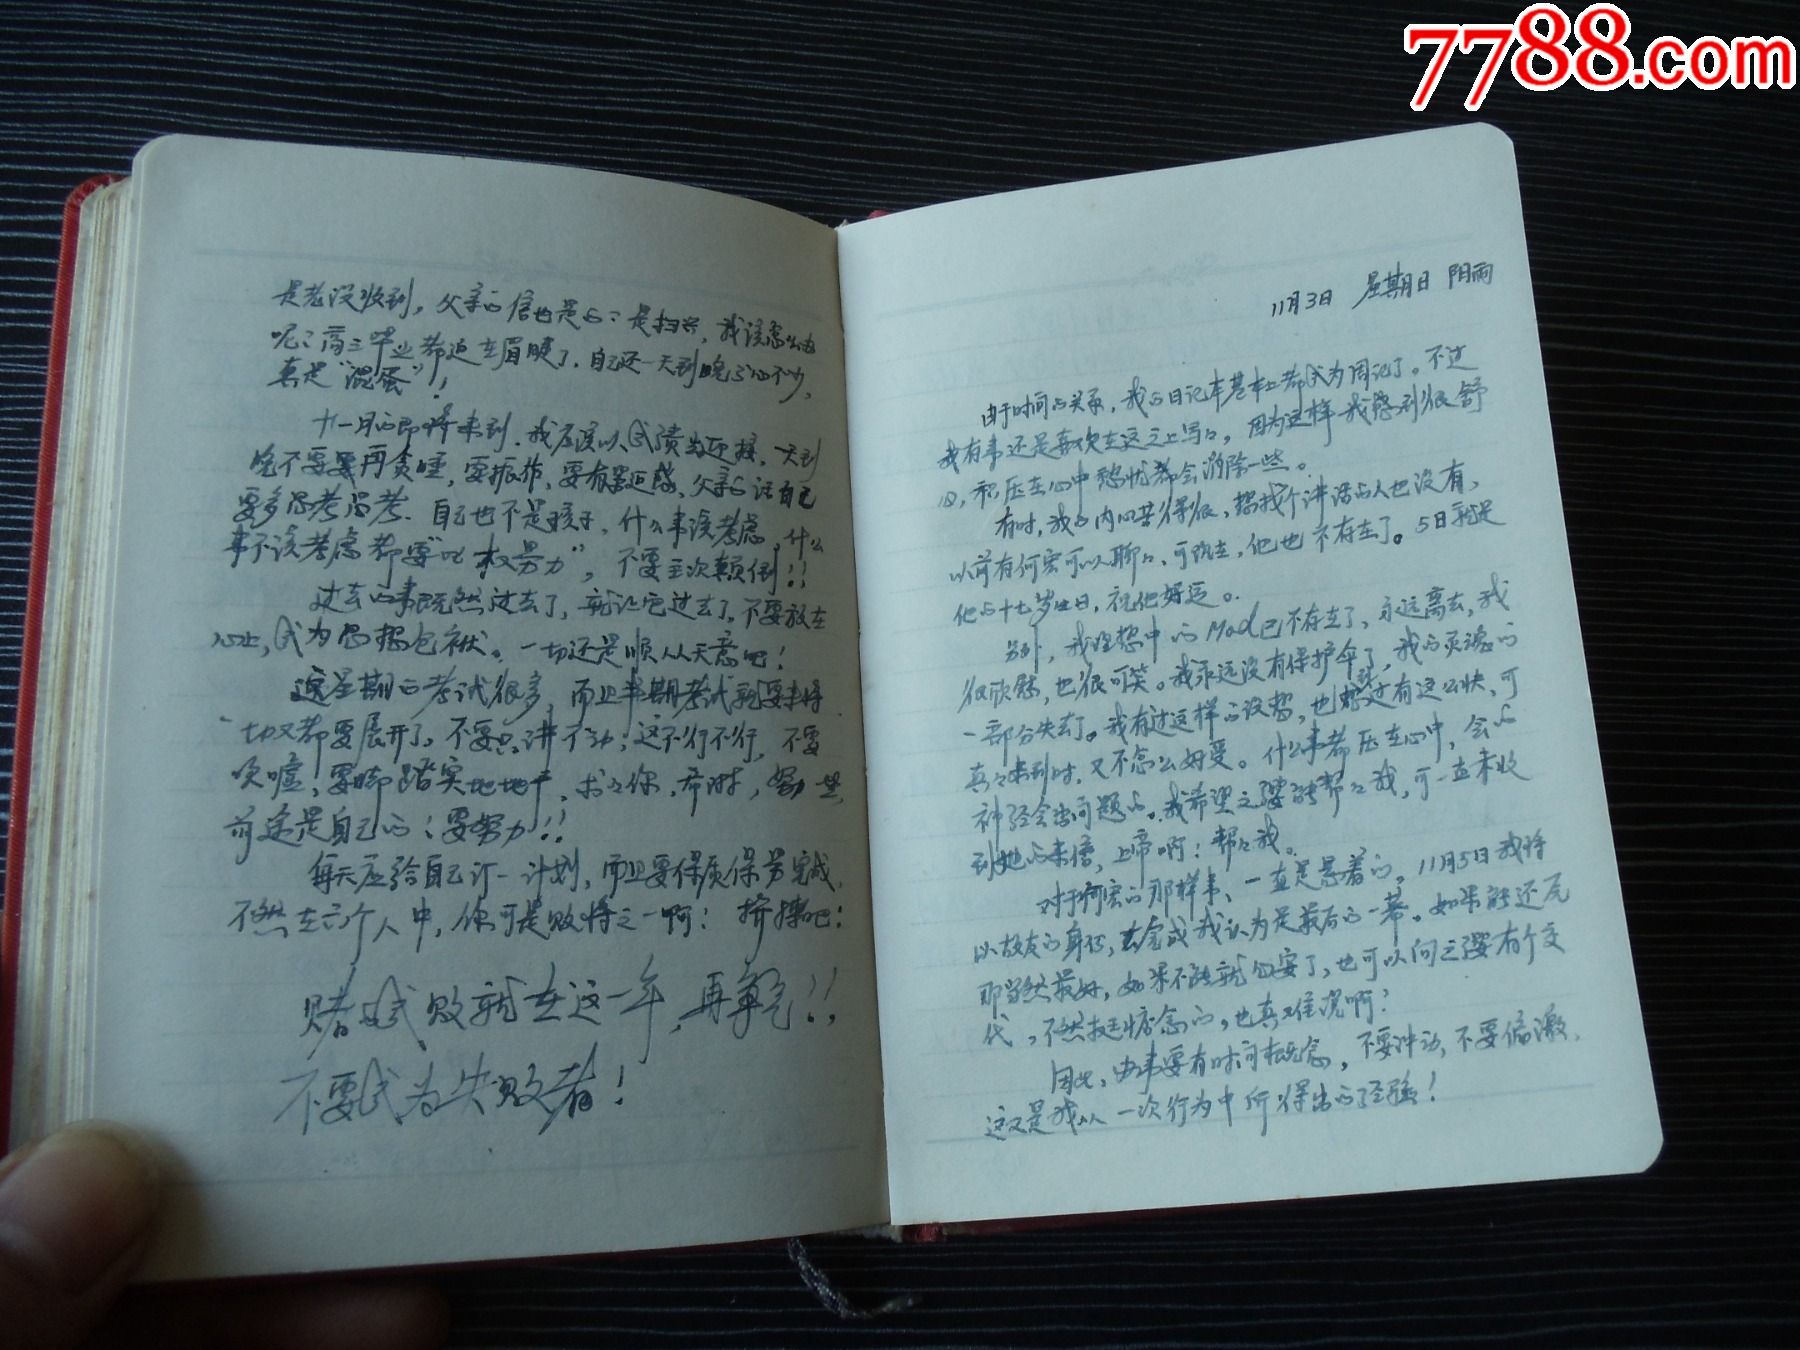 7788.com
是老没收到，父亲的信也是的？是扫兴，我该怎么办
呢？高三毕业都迫在眉睫了，自己还一天到晚
真是“混蛋”！
十一月的即将来到，我应该以成绩去迎接，一天到
晚不要再贪睡，要振作，要有紧迫感，父亲的话自己
要多思考思考。自己也不是孩子，什么事该考虑，什么
事不该考虑都要，不要主次颠倒！！
过去的事既然过去了，就让它过去了，不要放在
心上，成为思想包袱。一切还是顺从天意吧！
这星期的考试很多，而且半期考试就要来临
一切又都要展开了，不要只讲不动；这不行不行，不要
唉嘘，要脚踏实地地干，求求你，
前途是自己的！要努力！！
每天应给自己订一计划，而且要保质保量完成，
不然在六个人中，你可是败将之一啊！拚搏吧！
赌成败就在这一年，再
不要成为失败者！
11月3日 星期日 阴雨
由于时间的关系，我的日记本基本上都成为周记了。不过
我有事还是喜欢在这之上写写，因为这样我感到很舒
心，积压在心中愁忧都会消除一些。
有时，我的内心苦得很，想找个讲话的人也没有，
以前有何宏可以聊聊，可现在，他也不存在了。5日就是
他的十七岁生日，祝他好运。
另外，我理想中的Mad已不存在了，永远离去，我
很欣慰，也很可笑。我永远没有保护伞了，我的灵魂的
一部分失去了。我有过这样的设想，也想过有这么快，可
真的来到时，又不怎么好受。什么事都压在心中，会的
神经会出问题的。我希望之骥能帮帮我，可一直未收
到她的来信，上帝啊！帮帮我。
对于何宏的那样事，一直是悬着的。11月5日我将
以故友的身份，去完成我认为是最后的一幕。如果能还尾
那当然最好，如果不能就心安了，也可以向之骥有个交
代，不然挺惦念的，也真难说啊！
因此，由事要有时间概念，不要冲动，不要偏激，
这又是我从一次行为中所得出的经验！